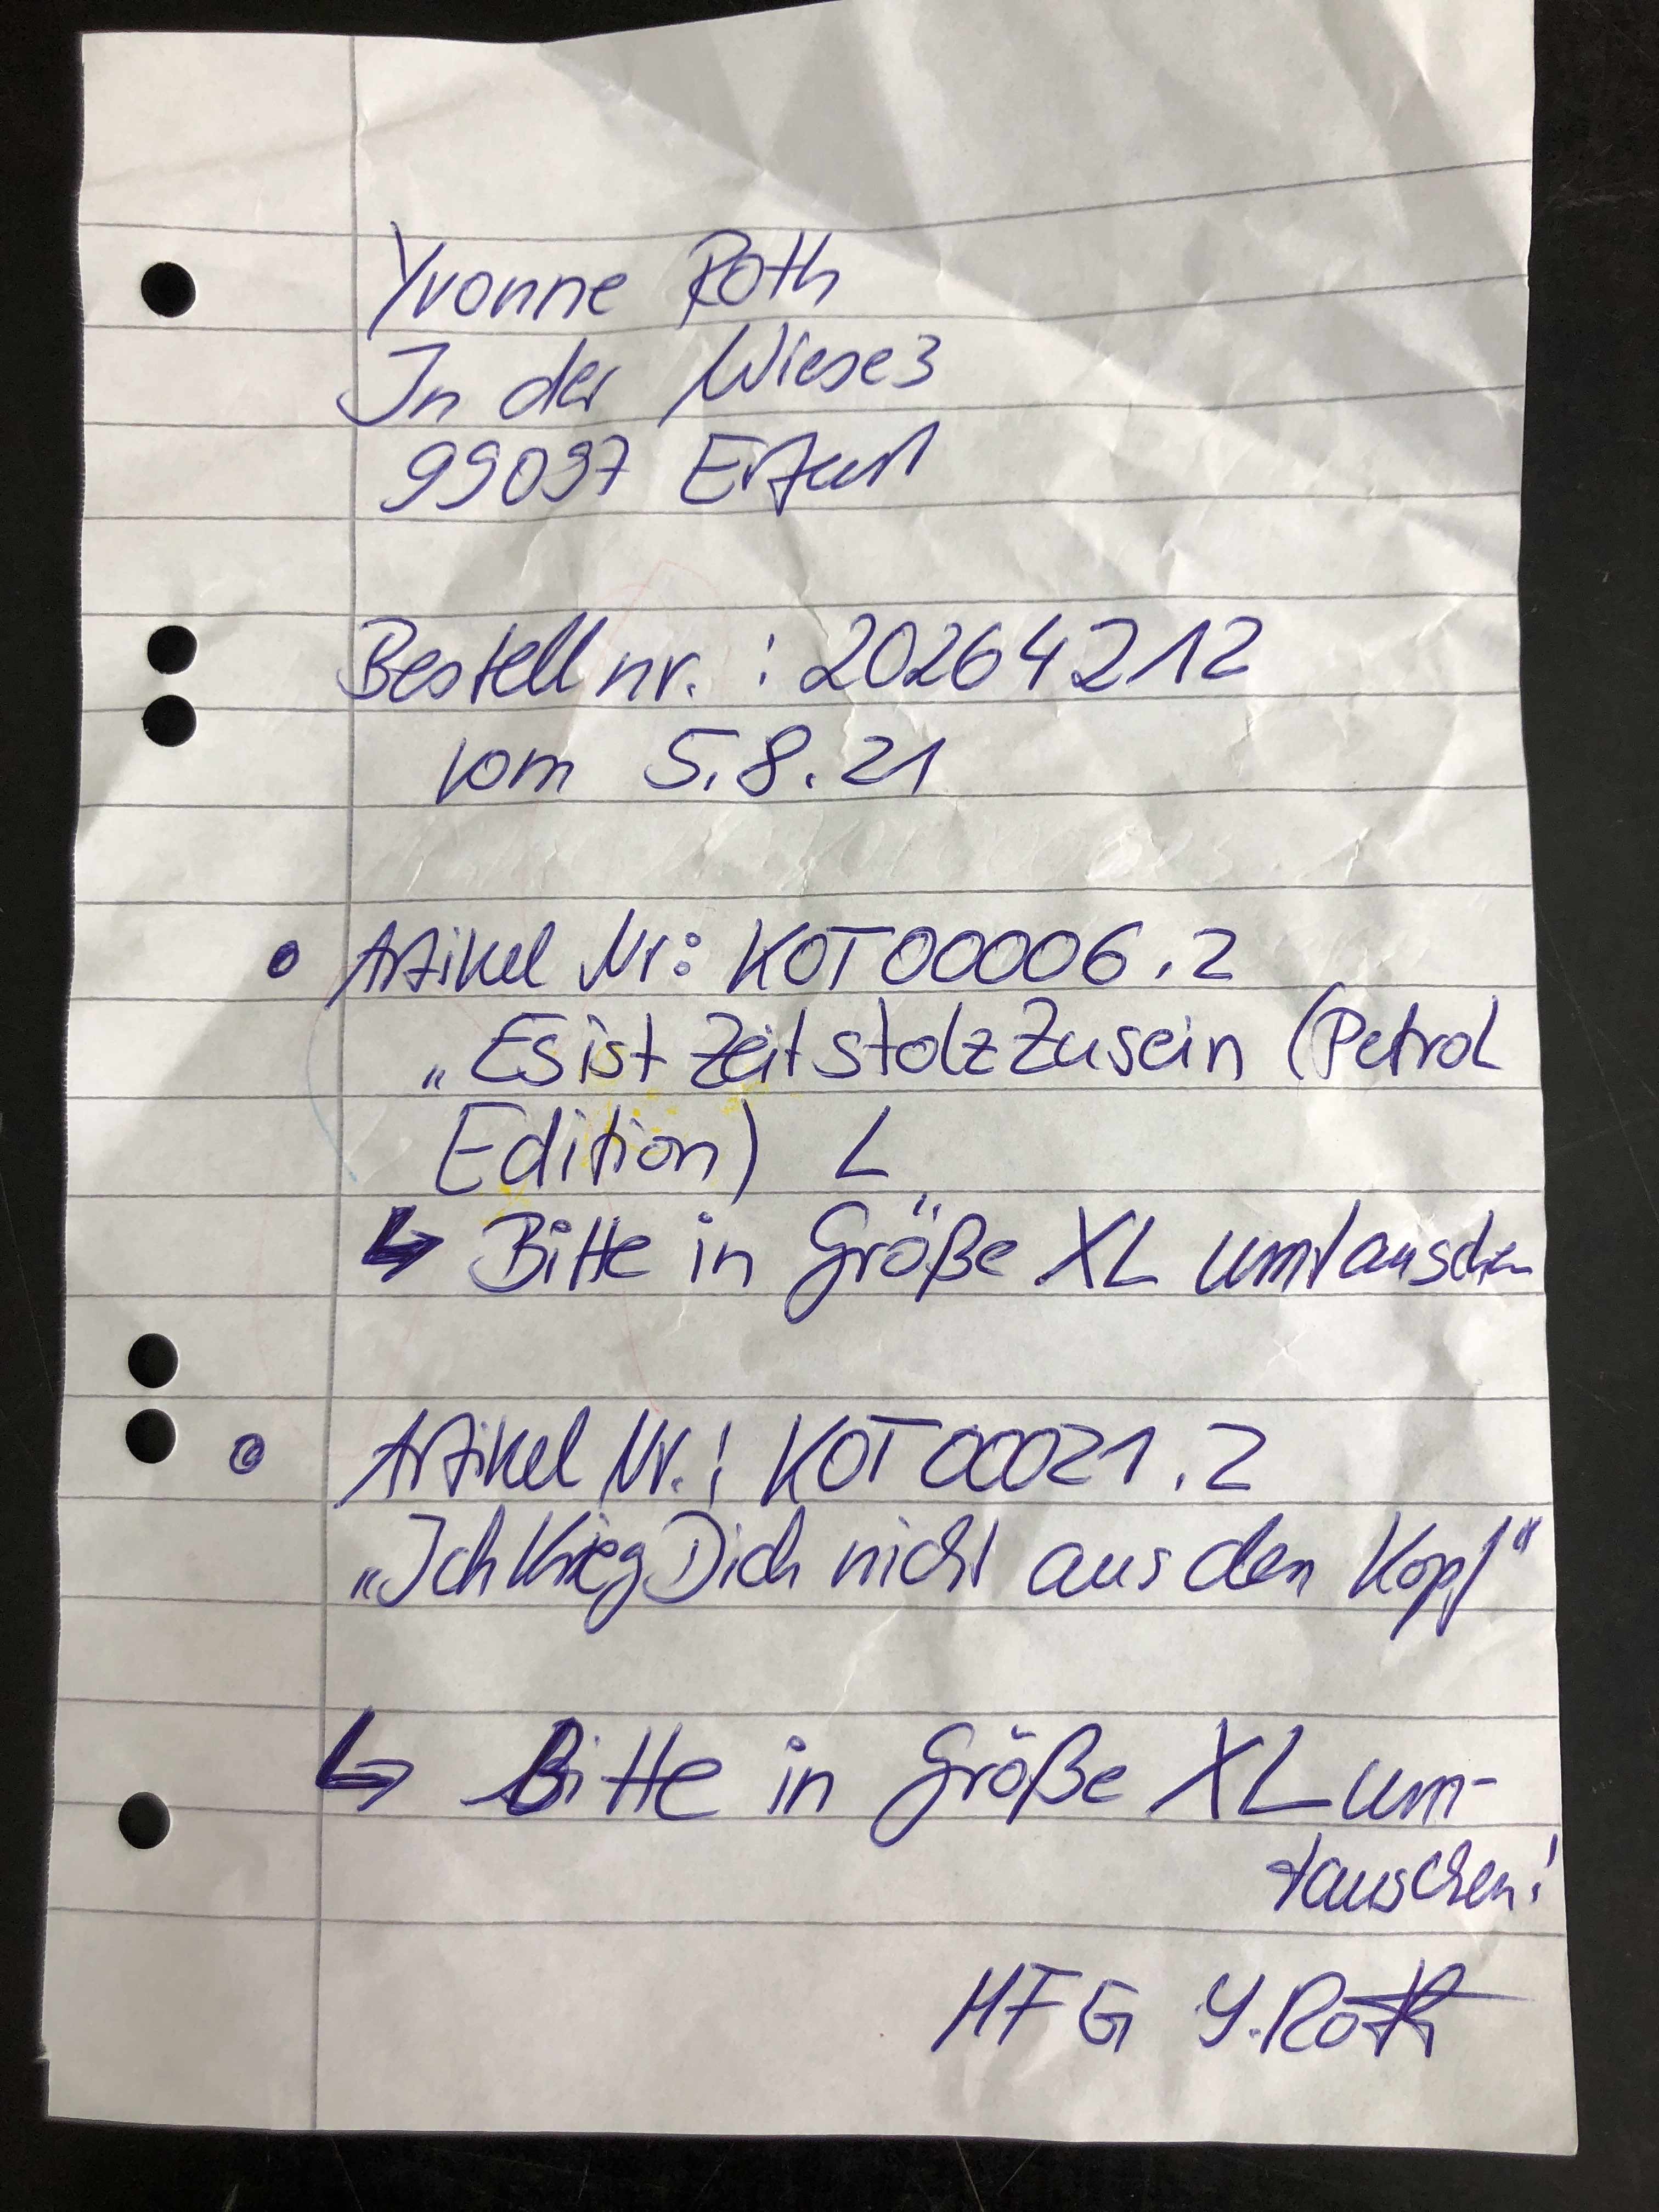 Yvonne Roth
In der Wiese 3
99097 Erfurt
Bestellnr. : 20264212
vom 5.8.21
• Artikel Nr: KOT00006.2
„Es ist Zeit stolz zu sein (Petrol
Edition) L
↳ Bitte in Größe XL umtauschen
• Artikel Nr.: KOT00021.2
„Ich krieg Dich nicht aus den Kopf“
↳ Bitte in Größe XL um-
tauschen!
MFG Y. Roth